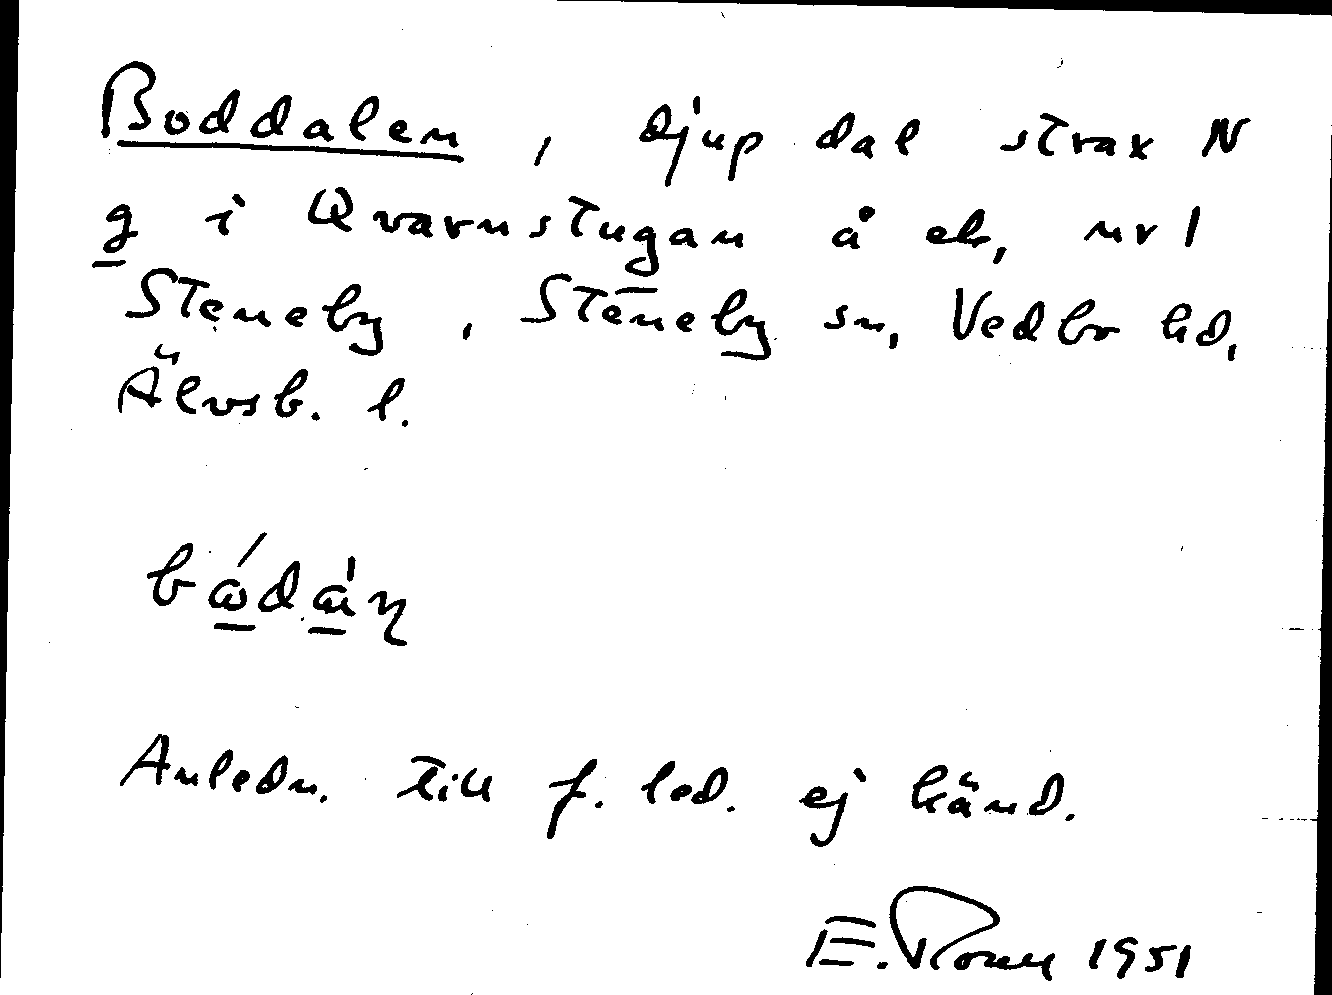 Boddalen, djup dal strax N
g i Qvarnstugan å ek, nr 1
Steneby, Steneby sn, Vedbo hd,
Älvsb. l.
Anledn. till f. led. ej känd.
E. 1951